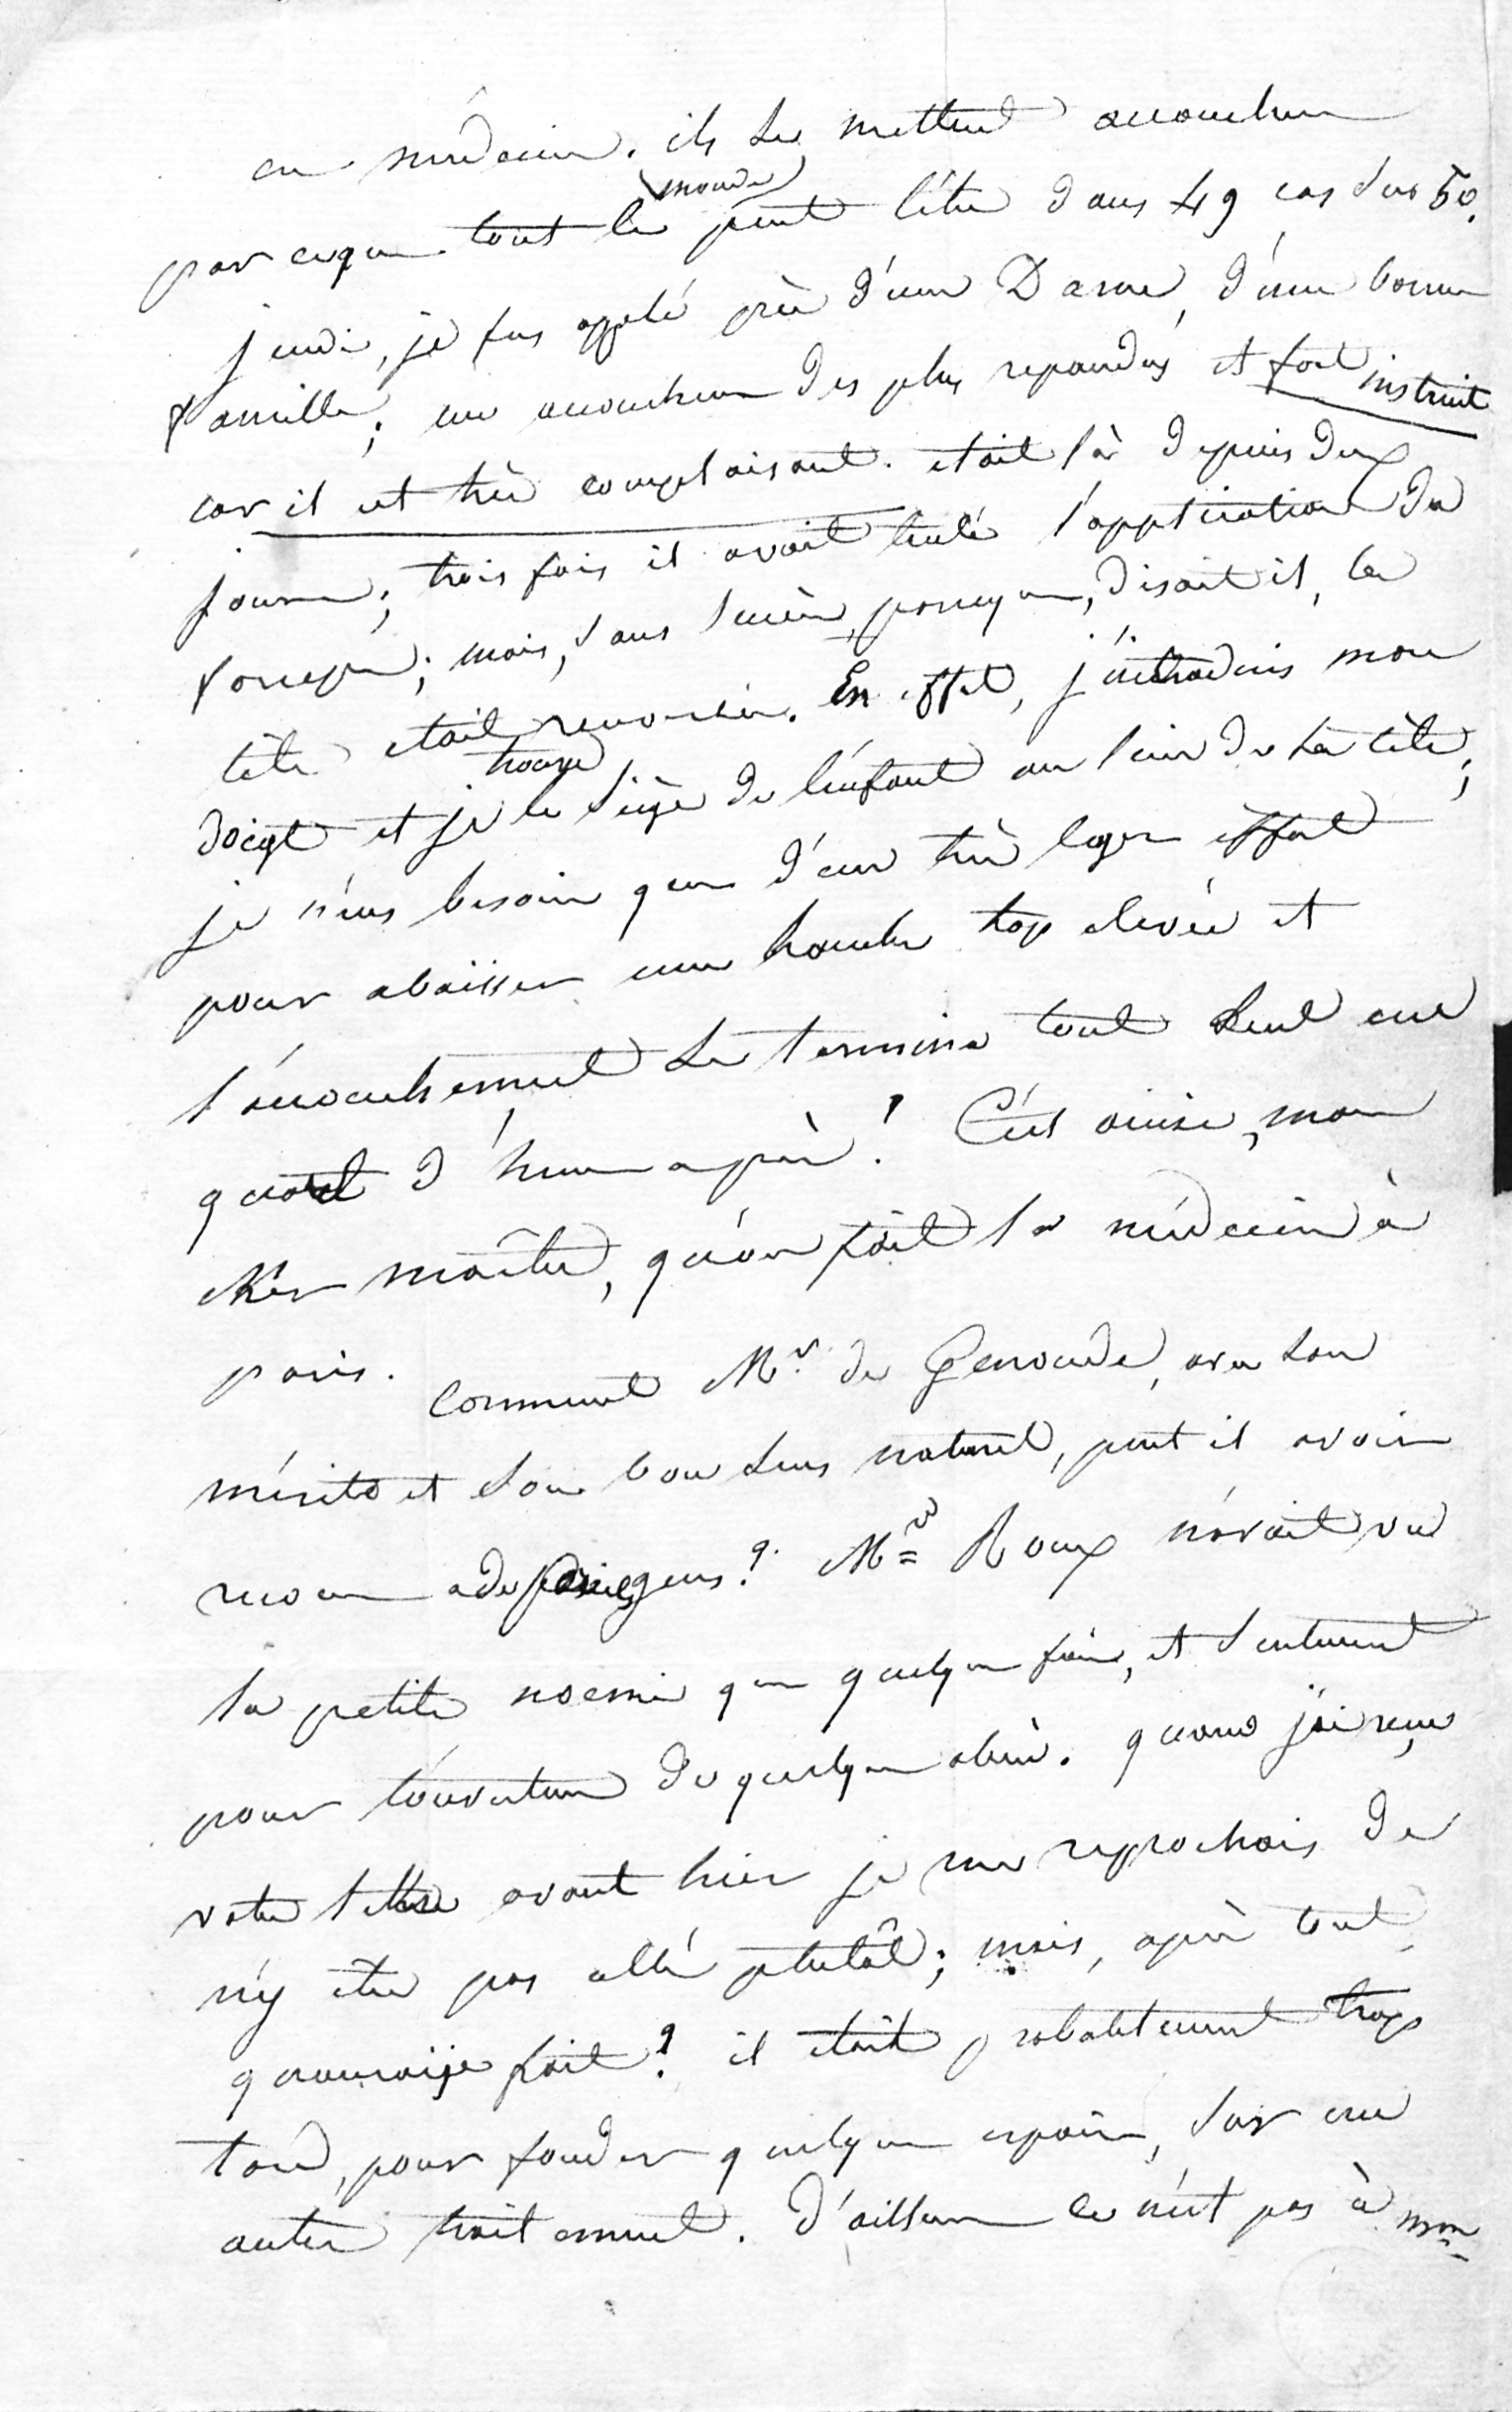 en médecine. ils se mettent accoucheurs
parceque tout le monde peut l'être dans 49 cas sur 50.
jeudi, je fus appelé près d'une Dame, d'une bonne
famille; un accoucheur des plus repandus et fort instruit
car il est très complaisant. etait là depuis deux
jours; trois fois il avait tenté l'application du
forceps; mais, sans succès, parceque, disait il, la
tête etait renversée. En effet, j'introduis mon
doigt et je trouve le siège de l'enfant au lieu de sa tête;
je n'eus besoin que d'un très leger effort
pour abaisser une hanche trop elevée et
l'accouchement se termina tout seul un
quart d'heure après! C'est ainsi, mon
cher maître, qu'on fait la médecine à
paris. Comment Mr. de Genoude, avec son
mérite et son bon sens naturel, peut il avoir
recours a de pareils gens? Mr Roux n'avait vu
la petite noemi que quelque fois, et seulement
pour l'ouverture de quelque abcès. quand j'ai reçu
votre lettre avant hier je me reprochais de
n'y etre pas allé plutôt; mais, après tout
qu'auraije fait? il etait probablement trop
tard, pour fonder quelque espoir, sur un
autre traitement. D'ailleurs ce n'est pas à mon